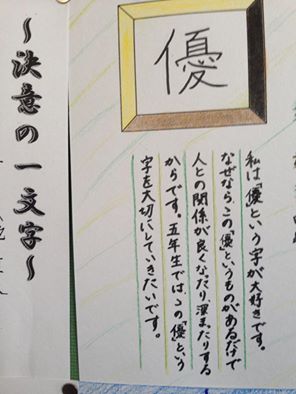 優
私は「優」という字が大好きです。
なぜなら、この「優」というものがあるだけで
人との関係が良くなったり、深まったりする
からです。五年生では、この「優」という
字を大切にしていきたいです。
～決意の一文字～